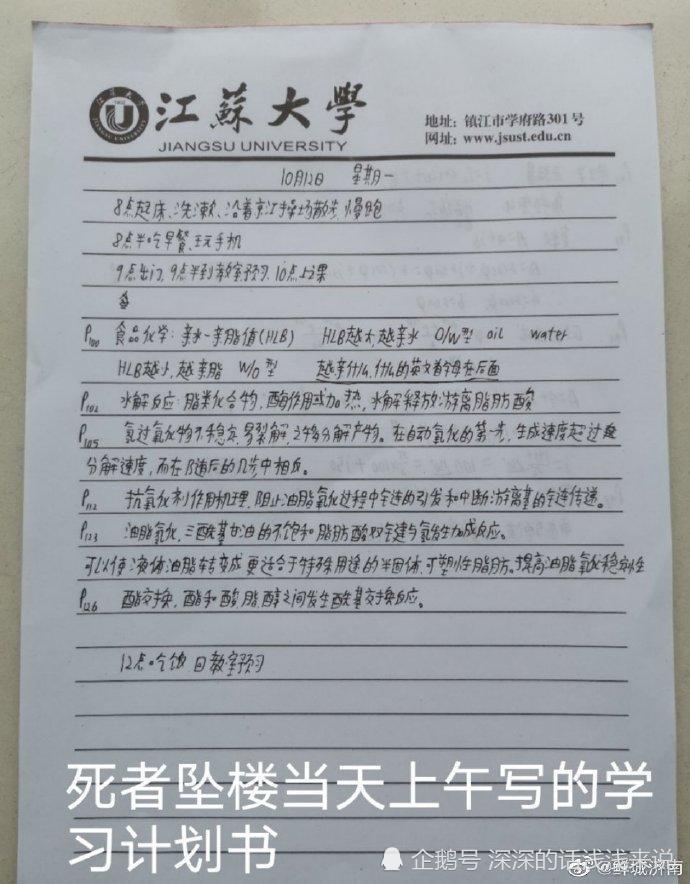 江苏大学
JIANGSU UNIVERSITY
地址：镇江市学府路301号
网址：www.jsust.edu.cn
10月12日 星期一
8点起床、洗漱、沿着京江操场散步、慢跑
8点半吃早餐、玩手机
9点出门，9点半到教室预习，10点上课
P100 食品化学：亲水-亲脂值(HLB) HLB越大，越亲水 O/W型 oil water
HLB越小，越亲脂 W/O型 越亲什么，什么的英文首字母在后面
P102 水解反应：脂类化合物，酶作用或加热，水解释放游离脂肪酸
P105 氢过氧化物不稳定，易裂解，产物分解产物。在自动氧化的第一步，生成速度超过
分解速度，而在随后的几步中相反。
P112 抗氧化剂作用机理，阻止油脂氧化过程中链的引发和中断游离基的链传递。
P123 油脂氢化，三酰基甘油的不饱和脂肪酸双键与氢发生加成反应。
可以使液体油脂转变成更适合于特殊用途的半固体，可塑性脂肪。提高油脂氧化稳定性
P126 酯交换，酯和酸，脂，醇之间发生酰基交换反应。
12点吃饭 回教室预习
死者坠楼当天上午写的学
习计划书
企鹅号 深深的话浅浅来说
@鲜城济南